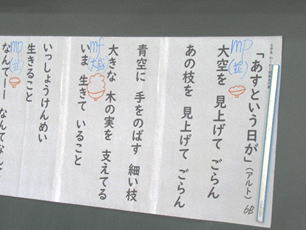 「あすという日が」(アルト)
mp
大空を 見上げて ごらん
あの枝を 見上げて ごらん
青空に 手をのばす 細い枝
大きな 木の実を 支えてる
mf
いま 生きて いること
いっしょうけんめい
mp
生きること
なんてーー なんてなん